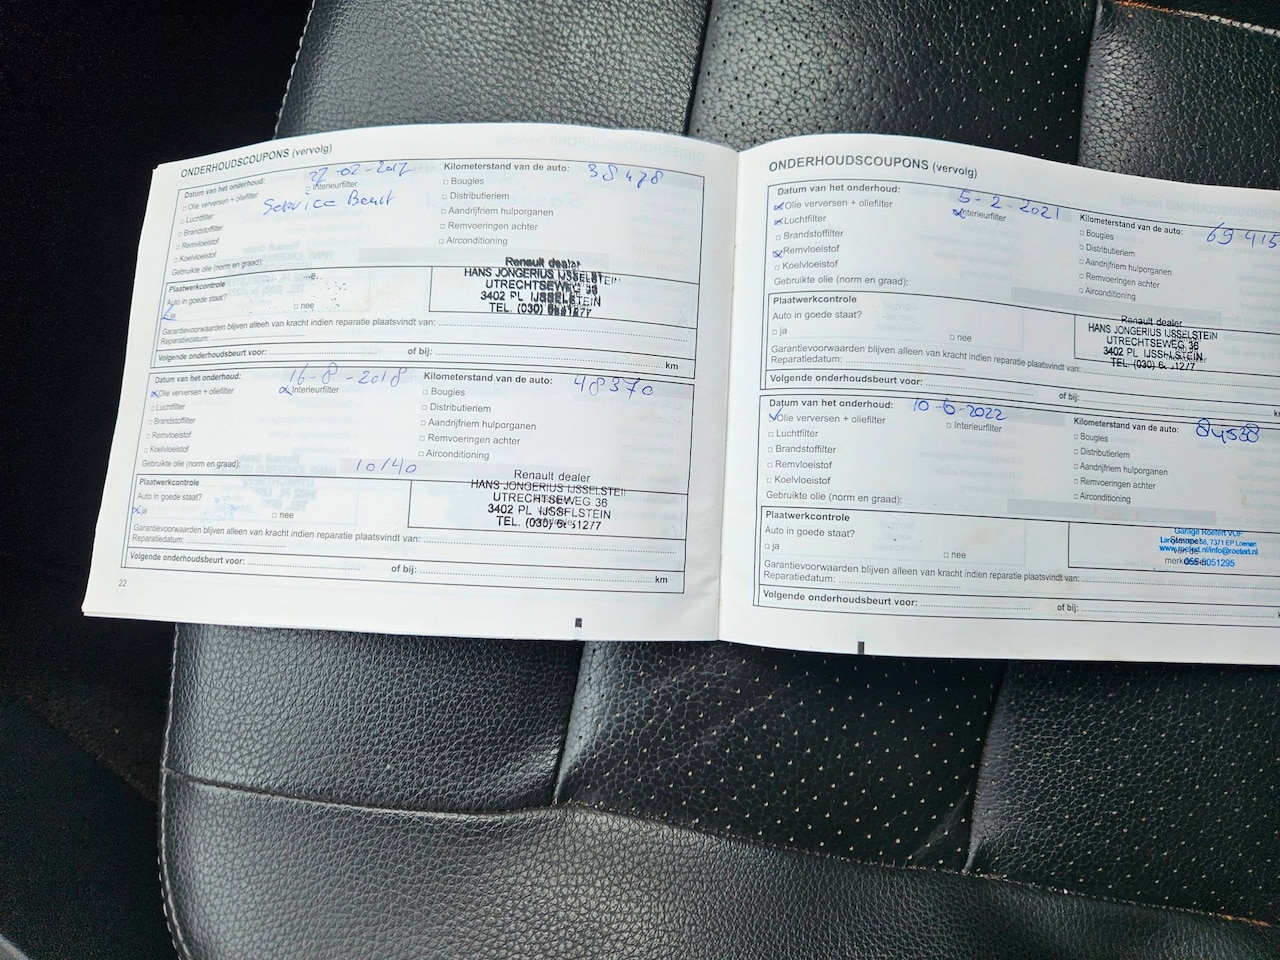 ONDERHOUDSCOUPONS (vervolg)
Datum van het onderhoud: 27-02-2017
Kilometerstand van de auto: 38478
Olie verversen + oliefilter
Interieurfilter
Service Beurt
Luchtfilter
Brandstoffilter
Remvloeistof
Koelvloeistof
Bougies
Distributieriem
Aandrijfriem hulporganen
Remvoeringen achter
Airconditioning
Gebruikte olie (norm en graad):
Plaatwerkcontrole
Auto in goede staat?
ja
nee
Renault dealer
HANS JONGERIUS IJSSELSTEIN
UTRECHTSEWEG 36
3402 PL IJSSELSTEIN
TEL. (030)
Garantievoorwaarden blijven alleen van kracht indien reparatie plaatsvindt van:
Reparatiedatum:
Volgende onderhoudsbeurt voor: of bij: km
Datum van het onderhoud: 16-8-2018
Kilometerstand van de auto: 48370
Olie verversen + oliefilter
Interieurfilter
Luchtfilter
Brandstoffilter
Remvloeistof
Koelvloeistof
Bougies
Distributieriem
Aandrijfriem hulporganen
Remvoeringen achter
Airconditioning
Gebruikte olie (norm en graad): 10/40
Plaatwerkcontrole
Auto in goede staat?
ja
nee
Renault dealer
HANS JONGERIUS IJSSELSTEIN
UTRECHTSEWEG 36
3402 PL IJSSELSTEIN
TEL. (030)
Garantievoorwaarden blijven alleen van kracht indien reparatie plaatsvindt van:
Reparatiedatum:
Volgende onderhoudsbeurt voor: of bij: km
22
ONDERHOUDSCOUPONS (vervolg)
Datum van het onderhoud: 5-2-2021
Kilometerstand van de auto: 69415
Olie verversen + oliefilter
Interieurfilter
Luchtfilter
Brandstoffilter
Remvloeistof
Koelvloeistof
Bougies
Distributieriem
Aandrijfriem hulporganen
Remvoeringen achter
Airconditioning
Gebruikte olie (norm en graad):
Plaatwerkcontrole
Auto in goede staat?
ja
nee
Renault dealer
HANS JONGERIUS IJSSELSTEIN
UTRECHTSEWEG 36
3402 PL IJSSELSTEIN
TEL. (030)
Garantievoorwaarden blijven alleen van kracht indien reparatie plaatsvindt van:
Reparatiedatum:
Volgende onderhoudsbeurt voor: of bij:
Datum van het onderhoud: 10-6-2022
Kilometerstand van de auto: 84538
Olie verversen + oliefilter
Interieurfilter
Luchtfilter
Brandstoffilter
Remvloeistof
Koelvloeistof
Bougies
Distributieriem
Aandrijfriem hulporganen
Remvoeringen achter
Airconditioning
Gebruikte olie (norm en graad):
Plaatwerkcontrole
Auto in goede staat?
ja
nee
Garage Roetert VOF
7371 EP Loenen
www.roetert.nl/info@roetert.nl
Garantievoorwaarden blijven alleen van kracht indien reparatie plaatsvindt van:
Reparatiedatum:
Volgende onderhoudsbeurt voor: of bij: